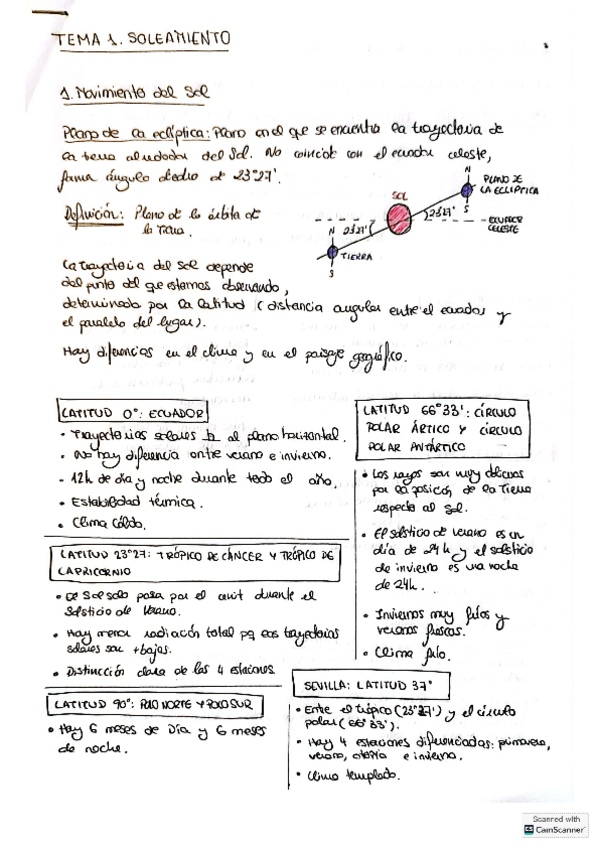 TEMA 1. SOLEAMIENTO
1. Movimiento del Sol
Plano de la eclíptica: Plano en el que se encuentra la trayectoria de
la tierra alrededor del Sol. No coincide con el ecuador celeste,
forma ángulo diedro de 23°27'.
Definición: Plano de la órbita de
la Tierra.
N
PLANO DE
LA ECLIPTICA
SOL
S
23°27'
ECUADOR
CELESTE
N 23°27'
TIERRA
S
La trayectoria del Sol depende
del punto del que estamos observando,
determinado por la latitud (distancia angular entre el ecuador y
el paralelo del lugar).
Hay diferencias en el clima y en el paisaje geográfico.
LATITUD 0°: ECUADOR
• Trayectorias solares ⊥ al plano horizontal.
• No hay diferencia entre verano e invierno.
- 12h de día y noche durante todo el año.
• Estabilidad térmica.
• Clima cálido.
LATITUD 23°27: TRÓPICO DE CÁNCER Y TRÓPICO DE
CAPRICORNIO
• El Sol solo pasa por el cenit durante el
solsticio de verano.
• Hay menor radiación total pq las trayectorias
solares son +bajas.
• Distincción clara de las 4 estaciones.
LATITUD 90°: POLO NORTE Y POLO SUR
• Hay 6 meses de Día y 6 meses
de noche.
LATITUD 66°33': CÍRCULO
POLAR ÁRTICO Y CÍRCULO
POLAR ANTÁRTICO
• Los rayos son muy oblicuos
por la posición de la Tierra
respecto al sol.
• El solsticio de verano es un
día de 24h y el solsticio
de invierno es una noche
de 24h.
• Inviernos muy fríos y
veranos frescos.
• Clima frío.
SEVILLA: LATITUD 37°
• Entre el trópico (23°27') y el círculo
polar (66°33').
• Hay 4 estaciones diferenciadas: primavera,
verano, otoño e invierno.
• Clima templado.
Scanned with
CamScanner